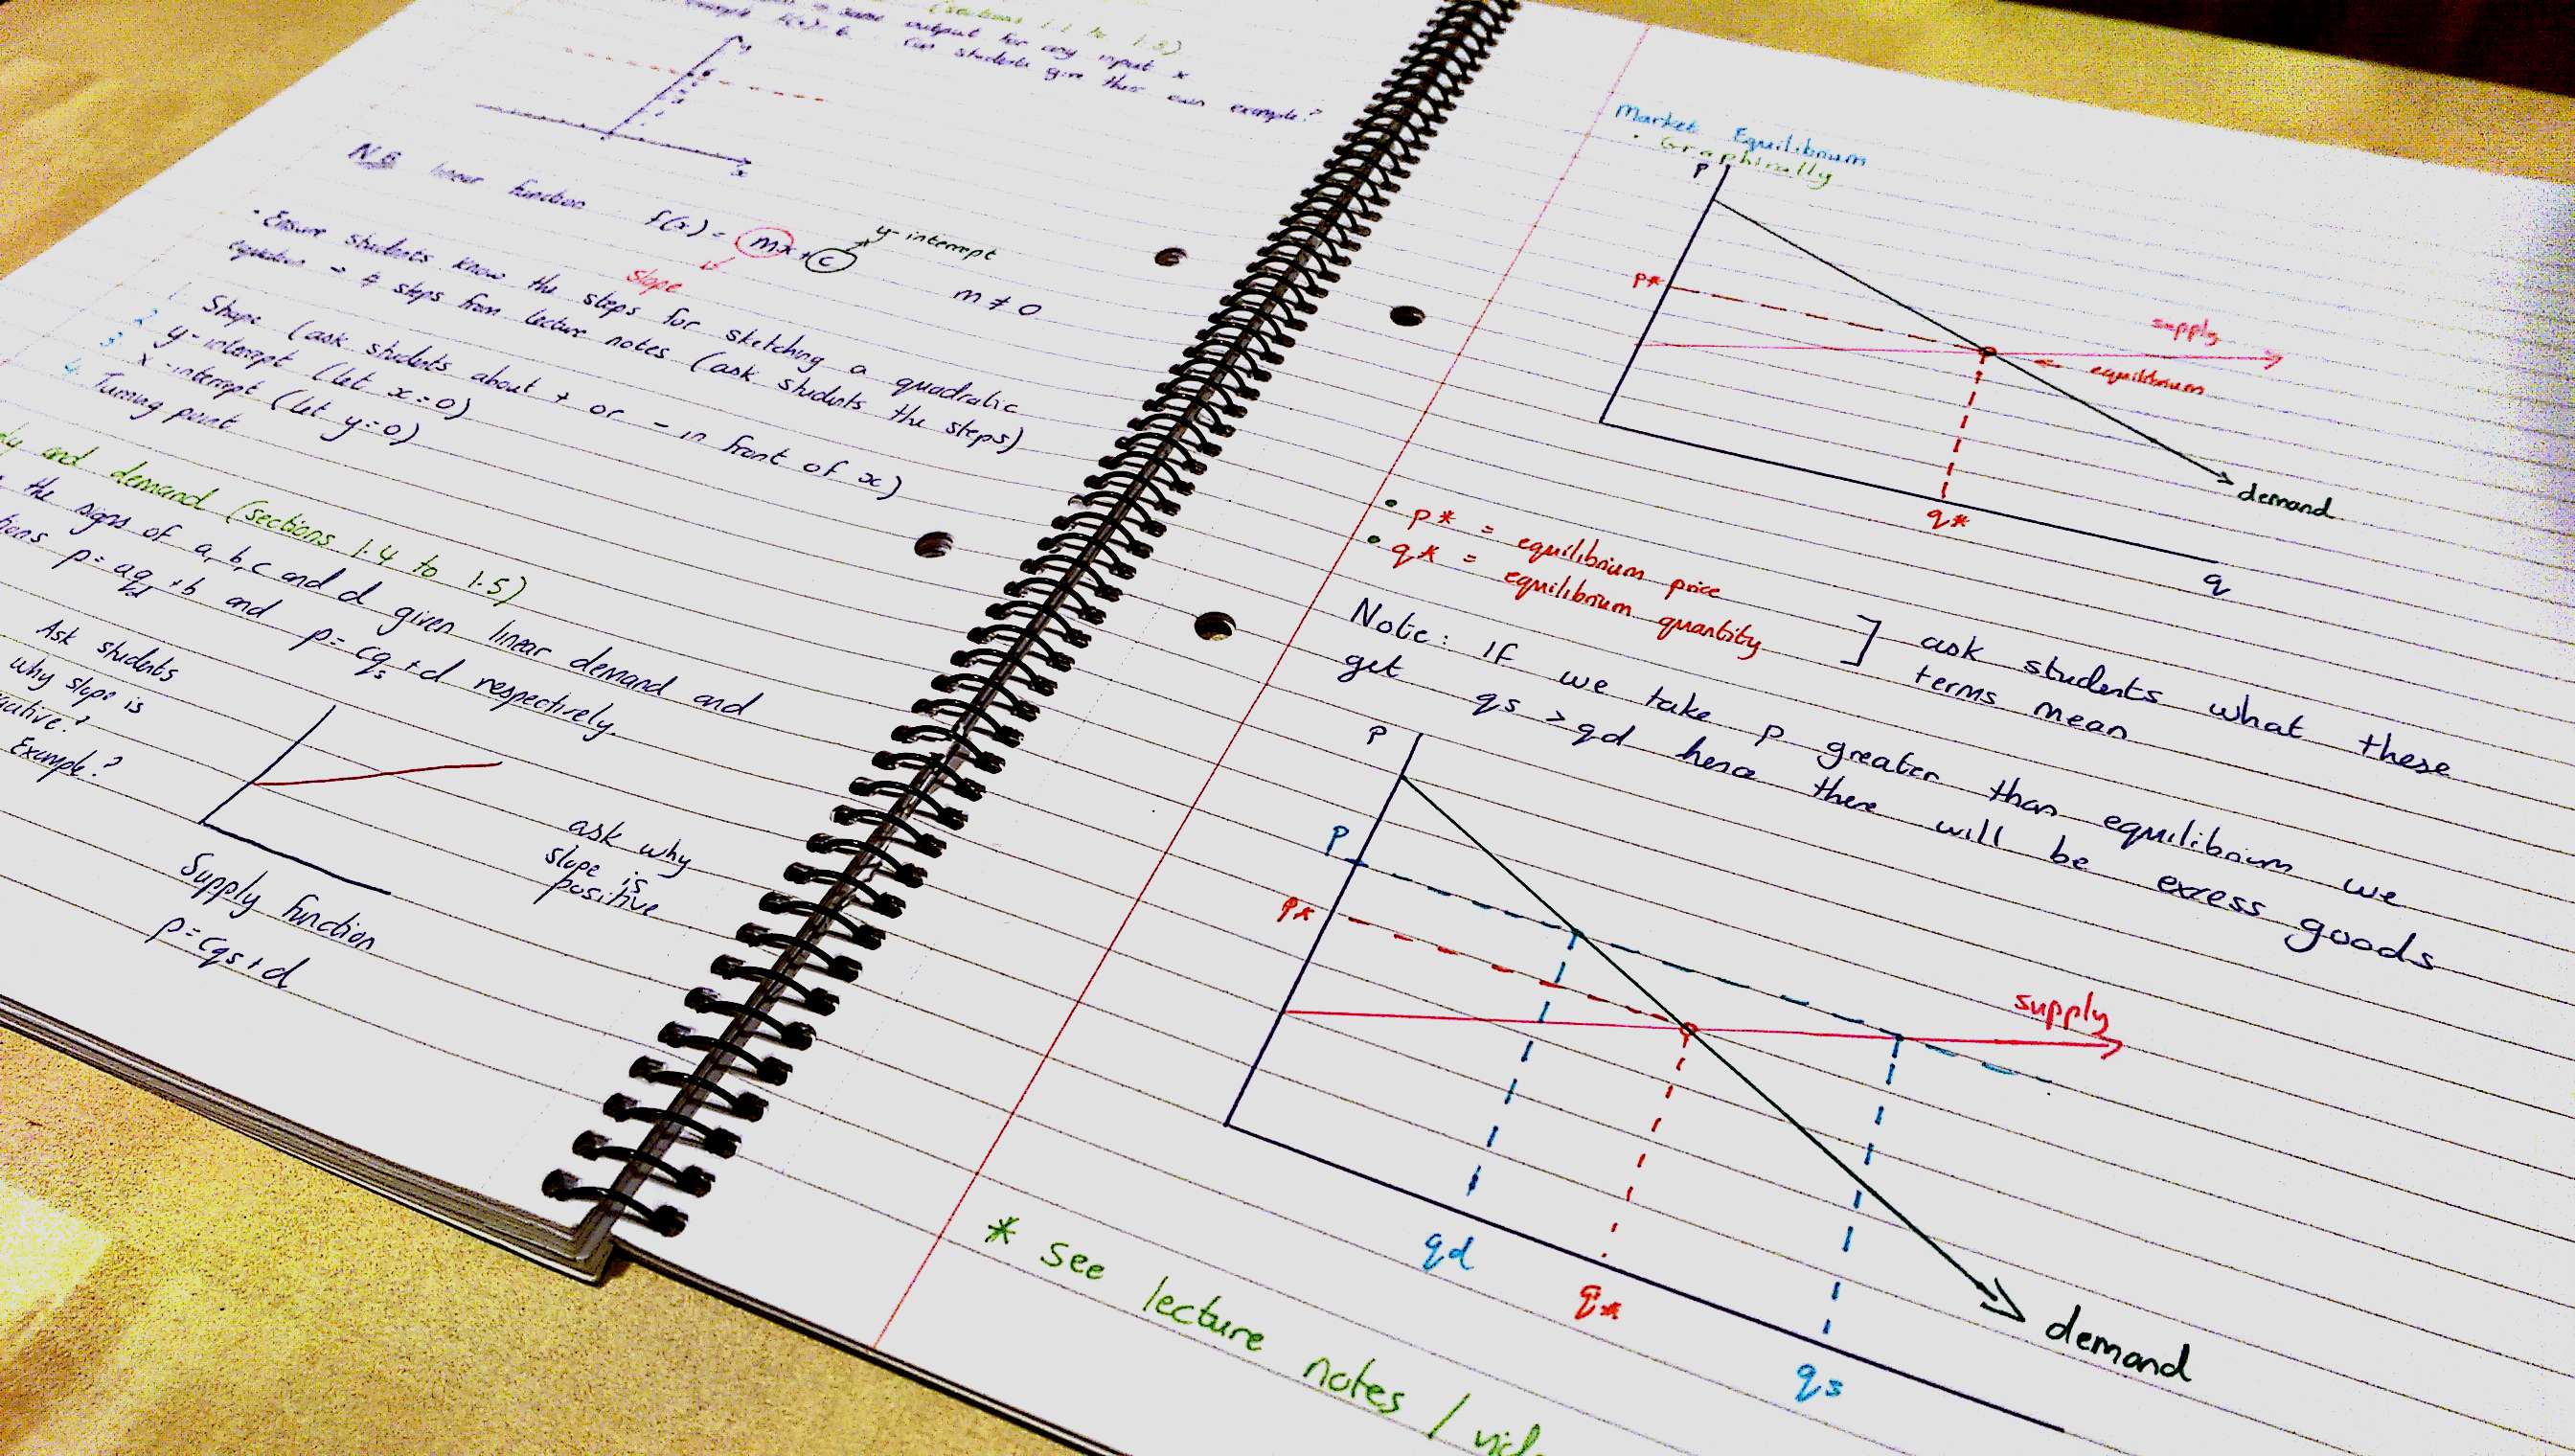 (sections 1.1 to 1.3)
same output for any input x
example f(x) = 6. Can students give their own example?
y
6
x
N.B linear function f(x) = mx + c
y-intercept
slope
m ≠ 0
• Ensure students know the steps for sketching a quadratic
equation → 4 steps from lecture notes (ask students the steps)
1. Shape (ask students about + or - in front of x)
2. y-intercept (let x=0)
3. x-intercept (let y=0)
4. Turning point
and demand (sections 1.4 to 1.5)
the signs of a, b, c and d given linear demand and
p = aqd + b and p = cqs + d respectively.
Ask students
why slope is
Example?
ask why
slope is
positive
Supply function
p = cqs + d
Market Equilibrium
• Graphically
P
P*
supply
equilibrium
demand
q*
q
• p* = equilibrium price
• q* = equilibrium quantity
] ask students what these
terms mean
Note: If we take p greater than equilibrium we
get qs > qd hence there will be excess goods
P
P
P*
supply
demand
qd
q*
qs
* see lecture notes /